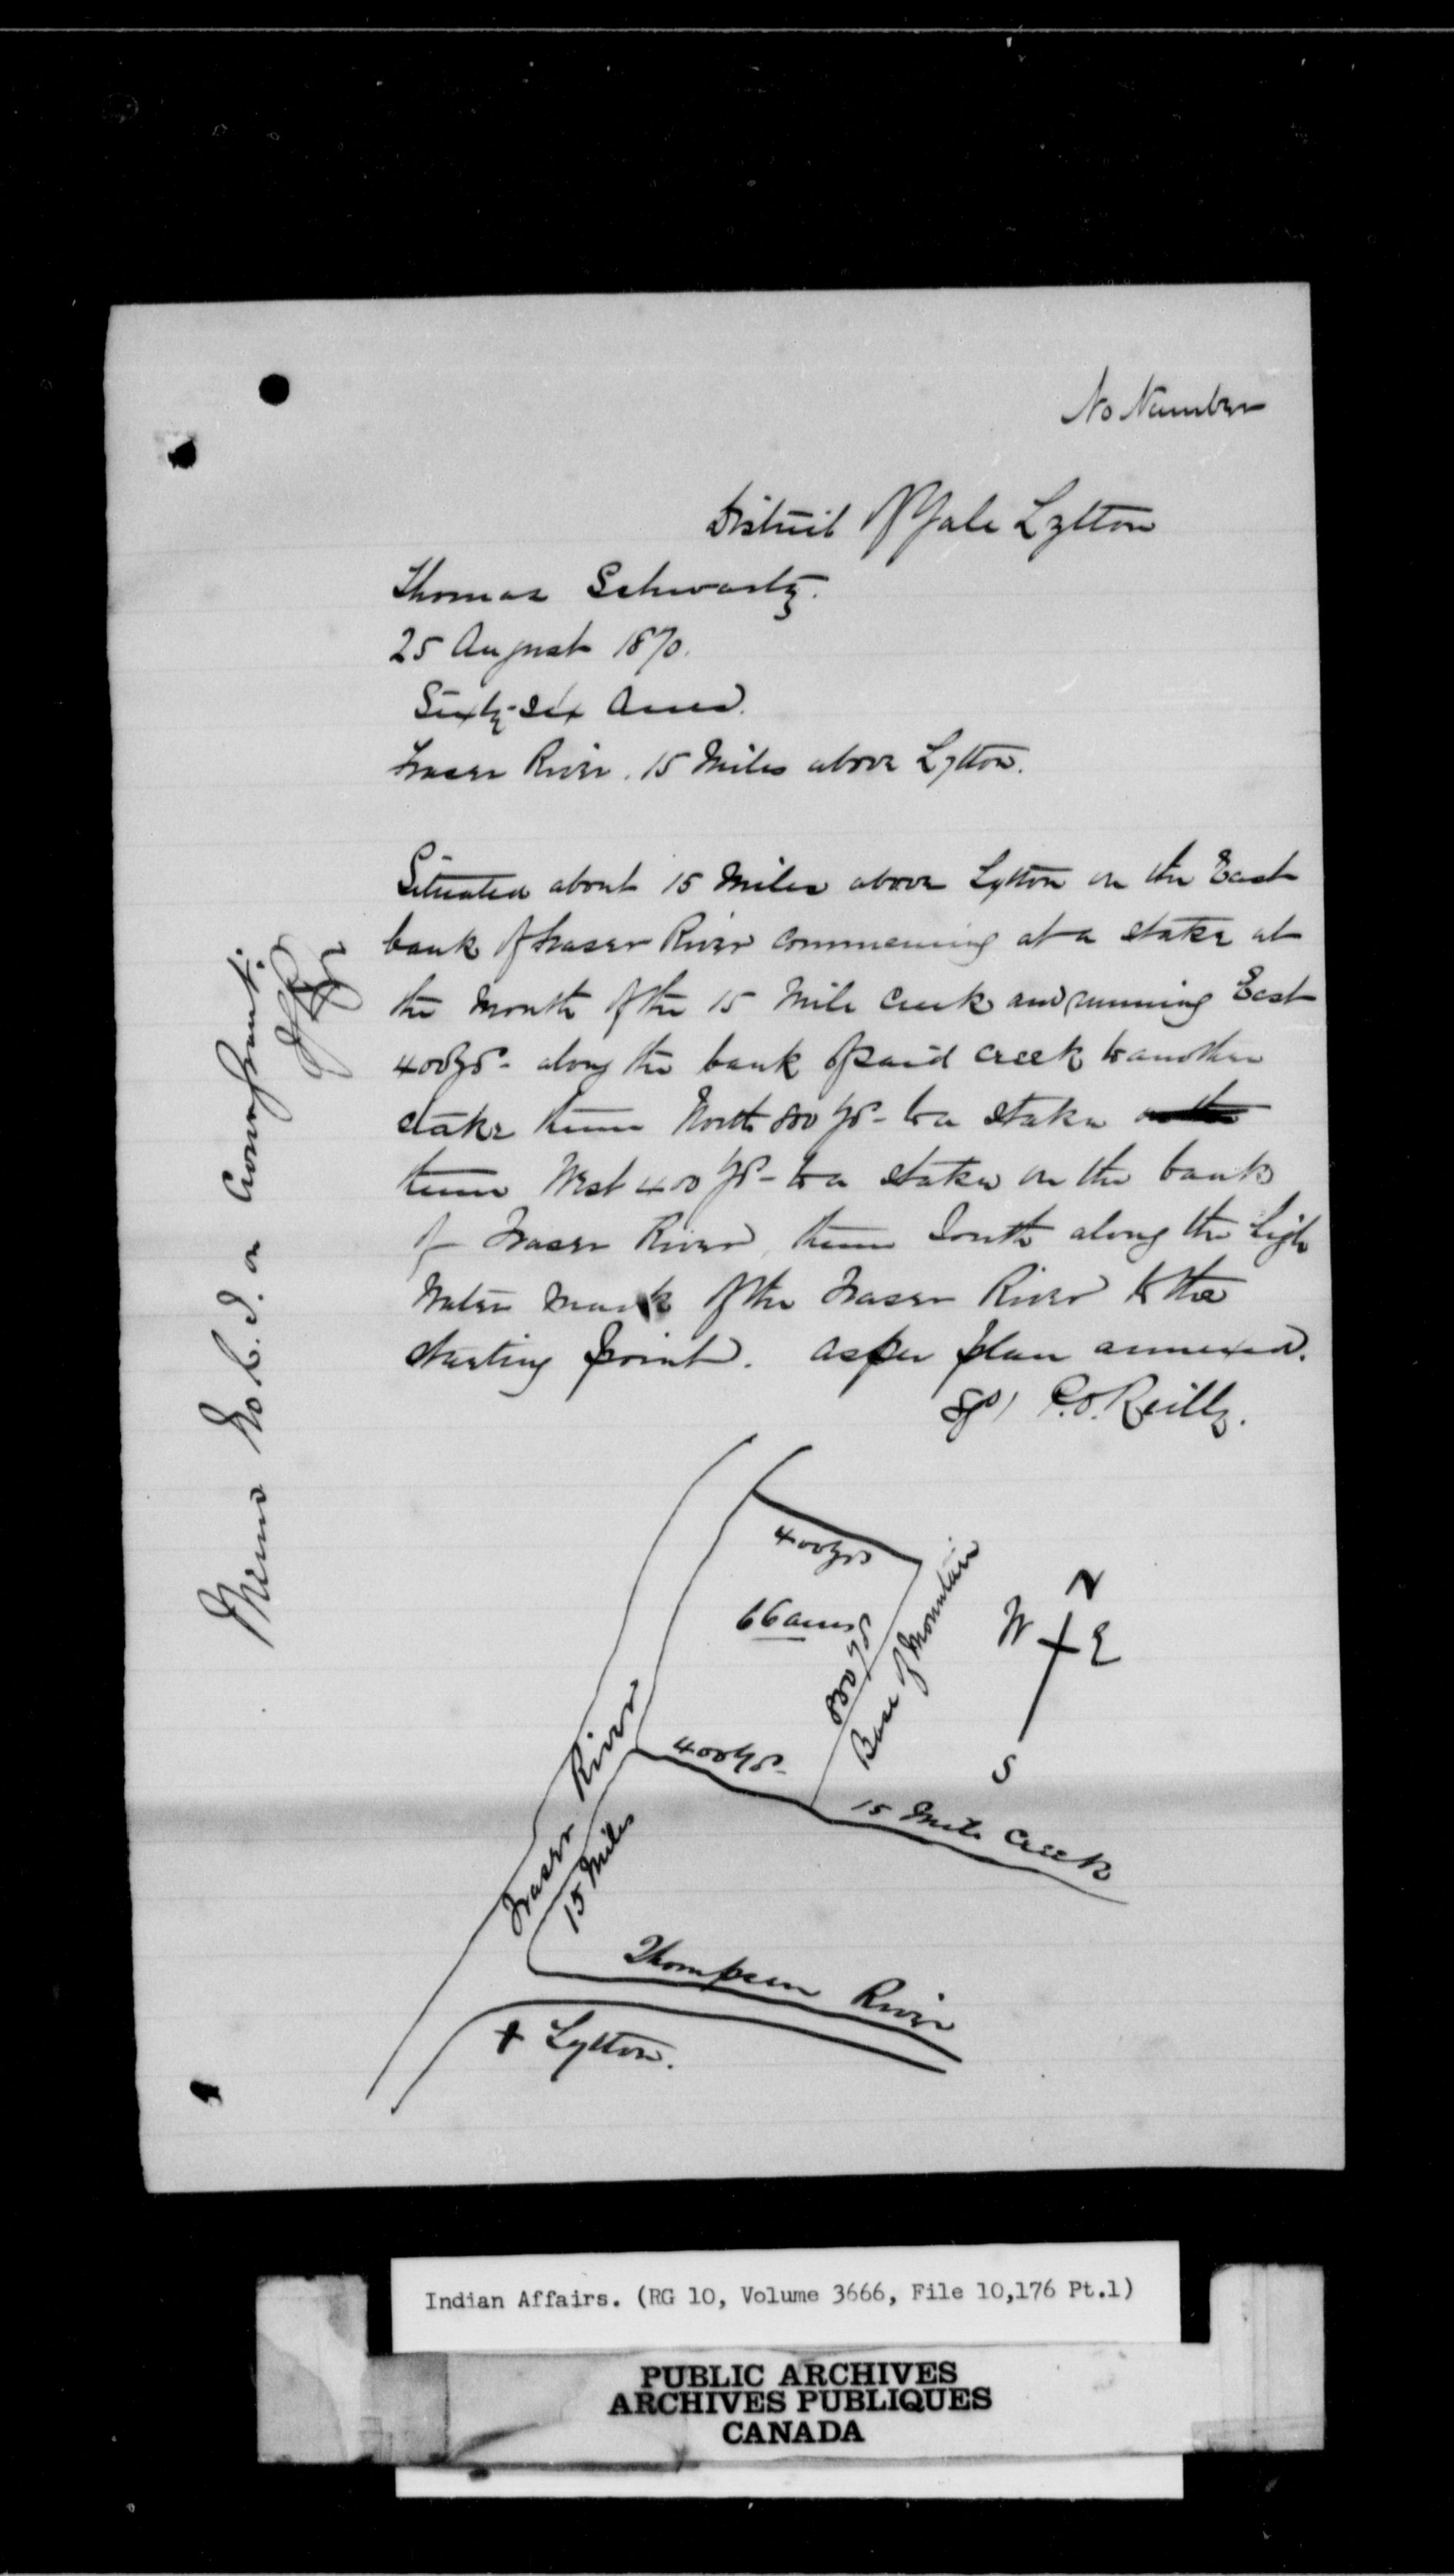 No Number
District of Yale Lytton
Thomas Schwartz.
25 August 1870.
Sixty-six Acres.
Fraser River. 15 Miles above Lytton.
Situated about 15 Miles above Lytton on the East
bank of Fraser River commencing at a stake at
the Mouth of the 15 Mile Creek and running East
400 yds - along the bank of said creek to another
stake thence North 800 yds - to a stake on the
thence West 400 yds - to a stake on the bank
of Fraser River, thence South along the high
Water Mark of the Fraser River to the
starting point. as per plan annexed.
sgd) P. O. Reilly.
Memo No C. I. on
400 yds
66 acres
800 yds
Base of Mountain
N
W E
S
400 yds -
15 Mile Creek
Fraser River
15 Miles
Thompson River
+ Lytton.
Indian Affairs. (RG 10, Volume 3666, File 10,176 Pt.1)
PUBLIC ARCHIVES
ARCHIVES PUBLIQUES
CANADA